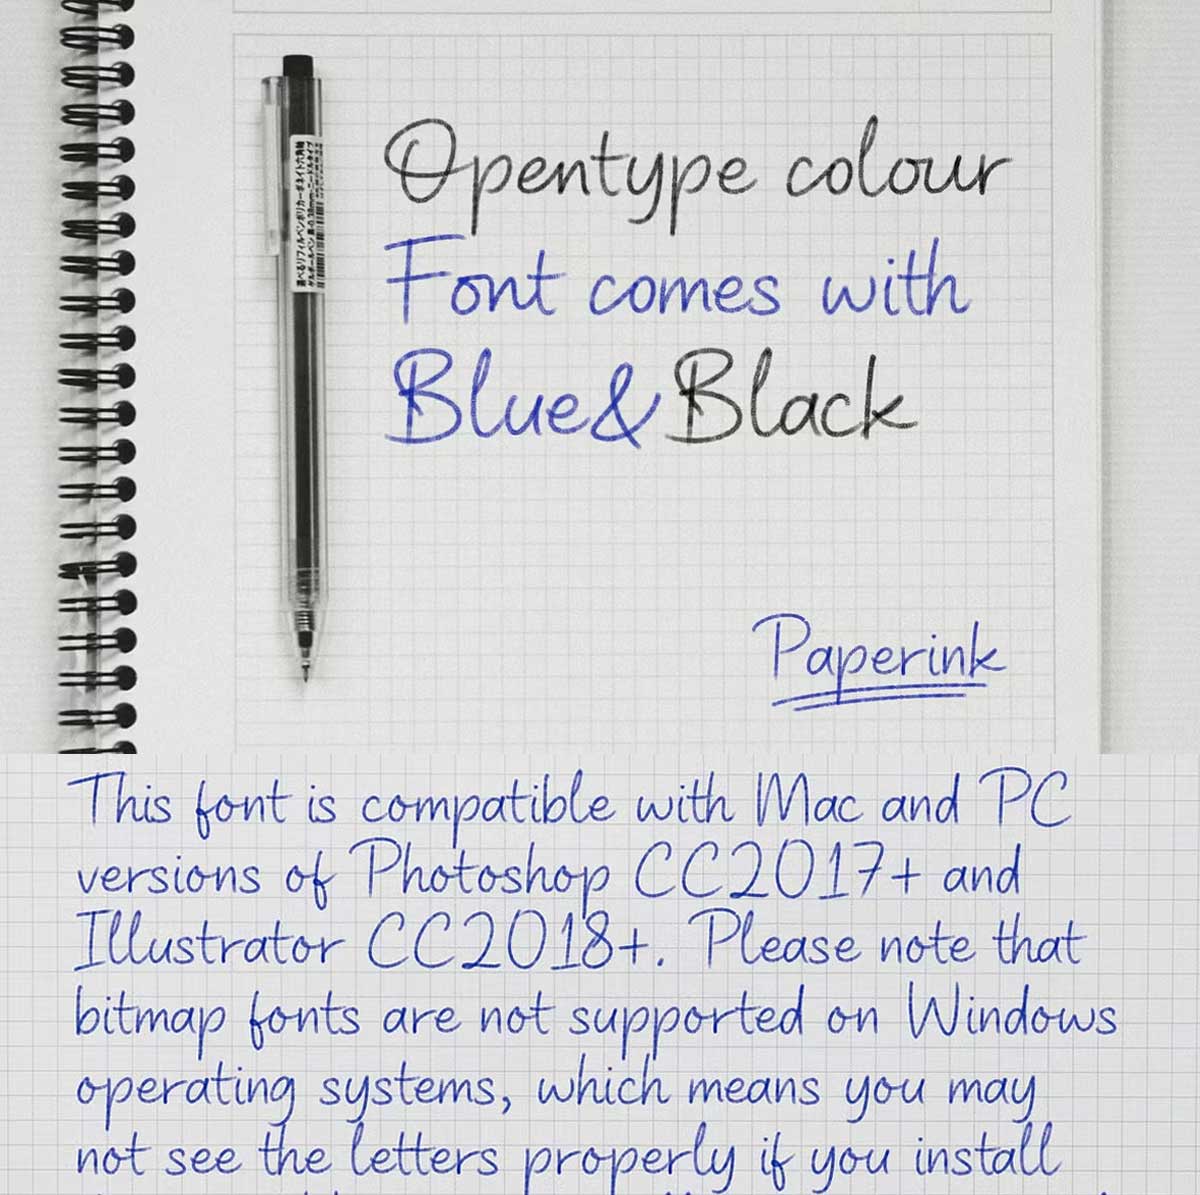 Opentype colour
Font comes with
Blue& Black
Paperink
This font is compatible with Mac and PC
versions of Photoshop CC2017+ and
Illustrator CC2018+. Please note that
bitmap fonts are not supported on Windows
operating systems, which means you may
not see the letters properly if you install